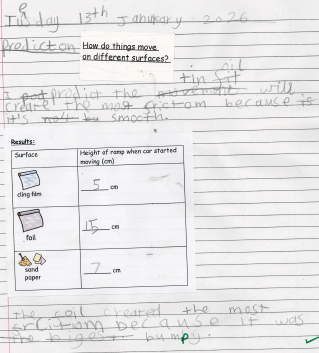 Tusday 13th Janurary 2026
Prediction
How do things move
on different surfaces?
tin foil
I predict the movement will
create the most frictom because is
it's not bu smooth.
Results:
Surface
Height of ramp when car started
moving (cm)
cling film
5 cm
foil
15 cm
sand
paper
7 cm
the foil created the most
frictiom because it was
the bigest bumpy.